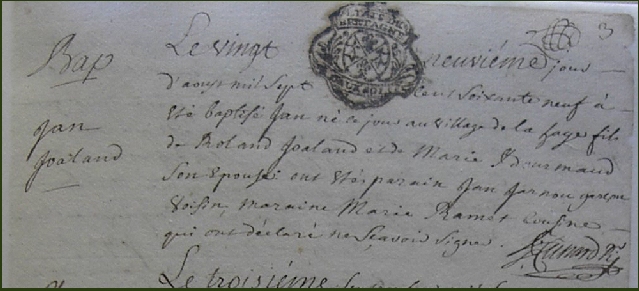 3
Bap
Jan
Joaland
Le vingt neuviéme jour
d'aoust mil sept cent soixante neuf a
eté baptisé Jan né ce jour au village de la haye fils
de Roland Joaland et de Marie
Son Epouse; ont etés parain Jan
voisin, maraine Marie Ramet Cousine
qui ont déclaré ne sçavoir signé.
BRETAGNE
Le troisiéme